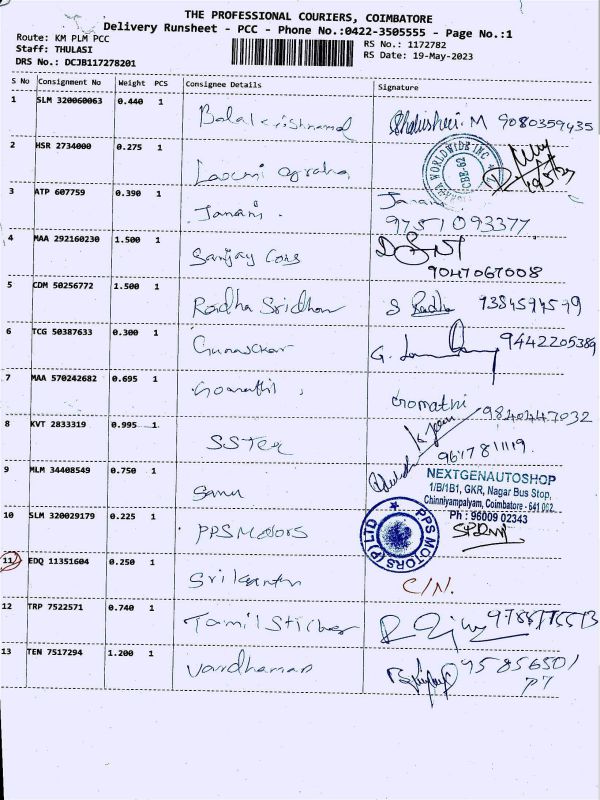 THE PROFESSIONAL COURIERS, COIMBATORE
Delivery Runsheet - PCC - Phone No.:0422-3505555 - Page No.:1
Route: KM PLM PCC
RS No.: 1172782
Staff: THULASI
RS Date: 19-May-2023
DRS No.: DCJB117278201
S No Consignment No Weight PCS Consignee Details Signature
1 SLM 320060063 0.440 1 9080359435
2 HSR 2734000 0.275 1 Laxmi
WORLDWIDE INC
CBE-62
3 ATP 607759 0.390 1 Janani. Janani
9751093377
4 MAA 292160230 1.500 1 Sanjay Cors
9047067008
5 CDM 50256772 1.500 1 Radha Sridhar S Radha
6 TCG 50387633 0.300 1 G. 9442205389
7 MAA 570242682 0.695 1 Gomathi
9840447032
8 KVT 2833319 0.995 1 SSTee
9617811119
9 MLM 34408549 0.750 1
NEXTGENAUTOSHOP
1/B/1B1, GKR, Nagar Bus Stop,
Chinniyampalyam, Coimbatore - 641 062.
Ph : 96009 02343
10 SLM 320029179 0.225 1 PPS Motors
PPS MOTORS (P) LTD
11 EDQ 11351604 0.250 1 Srikanth C/N.
12 TRP 7522571 0.740 1 Tamil Sticker
13 TEN 7517294 1.200 1 Vardhaman 95856501
77